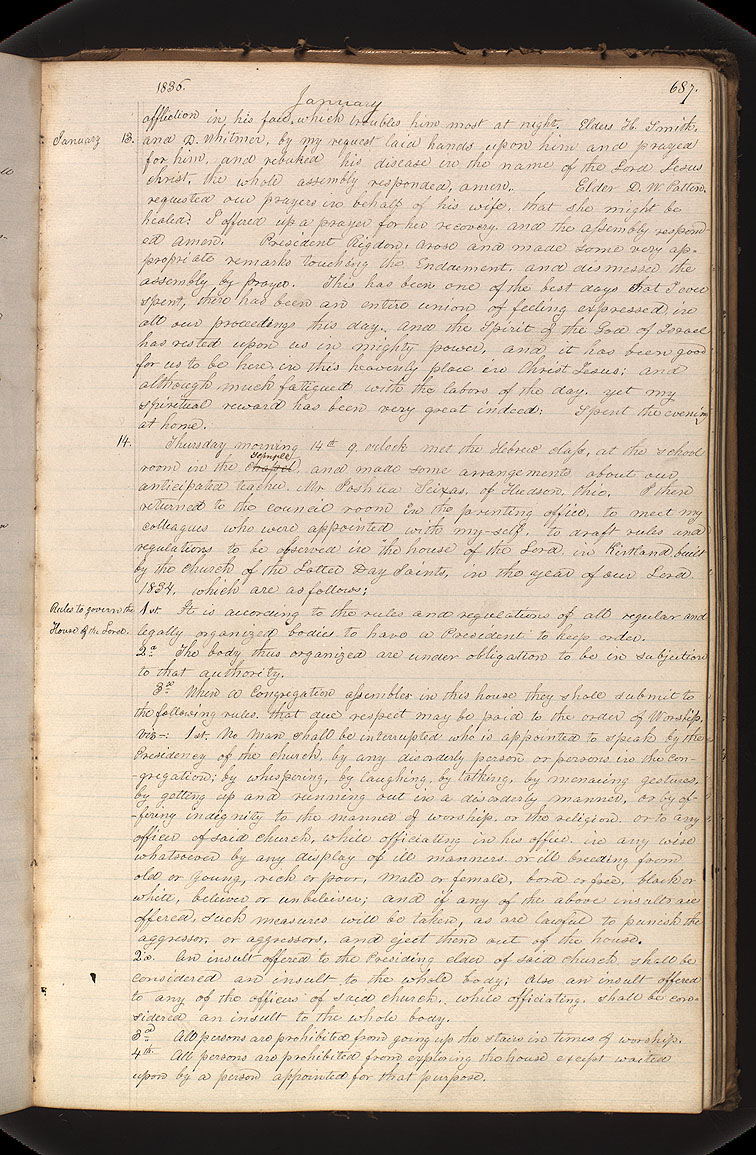 1836.
687.
January
affliction in his face, which troubles him most at night. Elders H. Smith,
January 13. and D. Whitmer, by my request laid hands upon him and prayed
for him, and rebuked his disease in the name of the Lord Jesus
Christ, the whole assembly responded, amen. Elder D. W. Patten,
requested our prayers in behalf of his wife, that she might be
healed: I offered up a prayer for her recovery, and the assembly respond-
ed amen. President Rigdon, arose and made some very ap-
propriate remarks touching the Enduement, and dismissed the
assembly by prayer. This has been one of the best days that I ever
spent, there has been an entire union of feeling expressed in
all our proceedings this day, and the Spirit of the God of Israel
has rested upon us in mighty power, and it has been good
for us to be here, in this heavenly place in Christ Jesus; and
although much fatigued with the labors of the day, yet my
spiritual reward has been very great indeed: Spent the evening
at home.
14. Thursday morning 14th 9, o'clock met the Hebrew class, at the school
room in the Chappel Temple, and made some arrangements about our
anticipated teacher, Mr Joshua Seixas, of Hudson, Ohio. I then
returned to the council room in the printing office, to meet my
colleagues who were appointed with my-self, to draft rules and
regulations to be observed in the house of the Lord in Kirtland built
by the Church of the Latter Day Saints, in the year of our Lord
1834, which are as follows;
Rules to govern the 1st It is according to the rules and regulations of all regular and
House of the Lord. legally organized bodies to have a President to keep order.
2d The body thus organized are under obligation to be in subjection
to that authority.
3d When a Congregation assembles in this house they shall submit to
the following rules, that due respect may be paid to the order of Worship,
viz-: 1st, No man shall be interrupted who is appointed to speak by the
Presidency of the church, by any disorderly person or persons in the con-
-gregation; by whispering, by laughing, by talking, by menacing gestures,
by getting up and running out in a disorderly manner, or by of-
-fering indignity to the manner of worship, or the religion, or to any
officer of said church, while officiating in his office, in any wise
whatsoever by any display of ill manners, or ill breeding from
old or young, rich or poor, male or female, bond or free, black or
white, believer or unbeliever; and if any of the above insults are
offered, such measures will be taken, as are lawful to punish the
aggressor, or aggressors, and eject them out of the house.
2d. An insult offered to the Presiding elder of said Church, shall be
considered an insult to the whole body; Also an insult offered
to any of the officers of said church, while officiating, shall be con-
sidered an insult to the whole body.
3d All persons are prohibited from going up the stairs in times of worship.
4th All persons are prohibited from exploring the house except waited
upon by a person appointed for that purpose.